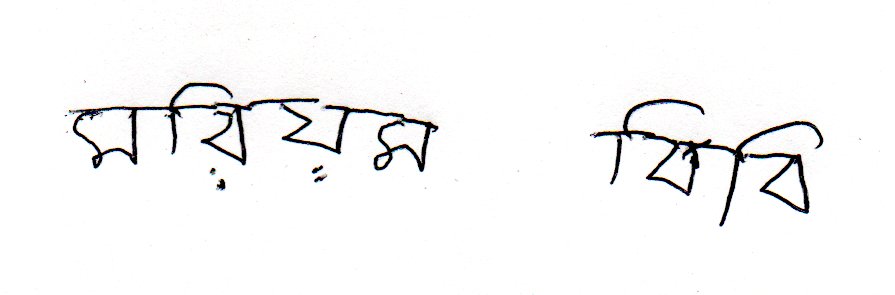 মরিয়ম বিবি